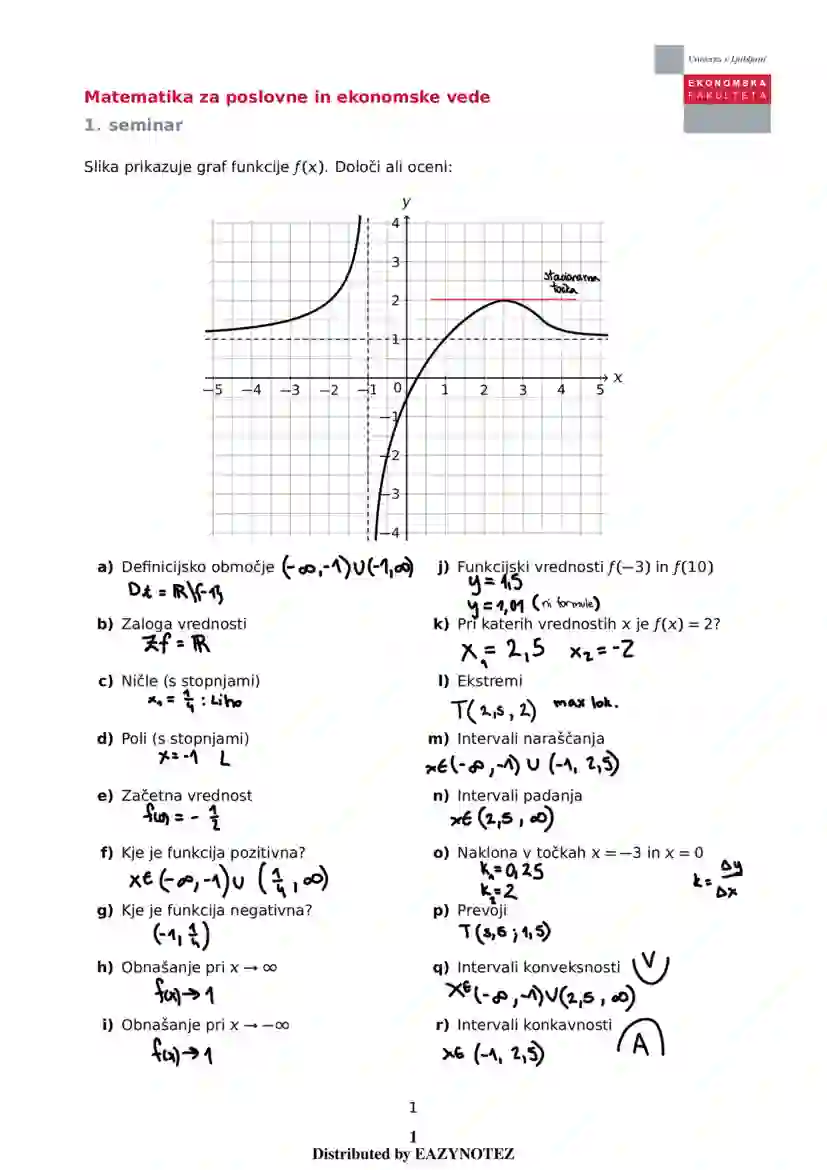 Univerza v Ljubljani
EKONOMSKA
FAKULTETA
Matematika za poslovne in ekonomske vede
1. seminar
Slika prikazuje graf funkcije f(x). Določi ali oceni:
y
4
3
stacionarna
točka
2
1
−5 −4 −3 −2 −1 0 1 2 3 4 5 x
−1
−2
−3
−4
a) Definicijsko območje (-∞,-1)∪(-1,∞)
Df = ℝ\{-1}
b) Zaloga vrednosti
Zf = ℝ
c) Ničle (s stopnjami)
x₁ = 1/4 : Liho
d) Poli (s stopnjami)
x=-1 L
e) Začetna vrednost
f(0) = - 1/2
f) Kje je funkcija pozitivna?
x∈(-∞,-1)∪(1/4,∞)
g) Kje je funkcija negativna?
(-1, 1/4)
h) Obnašanje pri x → ∞
f(x)→1
i) Obnašanje pri x → −∞
f(x)→1
j) Funkcijski vrednosti f(−3) in f(10)
y=1,5
y=1,01 (ni formule)
k) Pri katerih vrednostih x je f(x) = 2?
x₁=2,5 x₂=-2
l) Ekstremi
T(2,5, 2) max lok.
m) Intervali naraščanja
x∈(-∞,-1)∪(-1, 2,5)
n) Intervali padanja
x∈(2,5, ∞)
o) Naklona v točkah x = −3 in x = 0
k₁=0,25
k₂=2
k=Δy/Δx
p) Prevoji
T(3,5; 1,5)
q) Intervali konveksnosti V
x∈(-∞,-1)∪(2,5, ∞)
r) Intervali konkavnosti A
x∈(-1, 2,5)
1
1
Distributed by EAZYNOTEZ